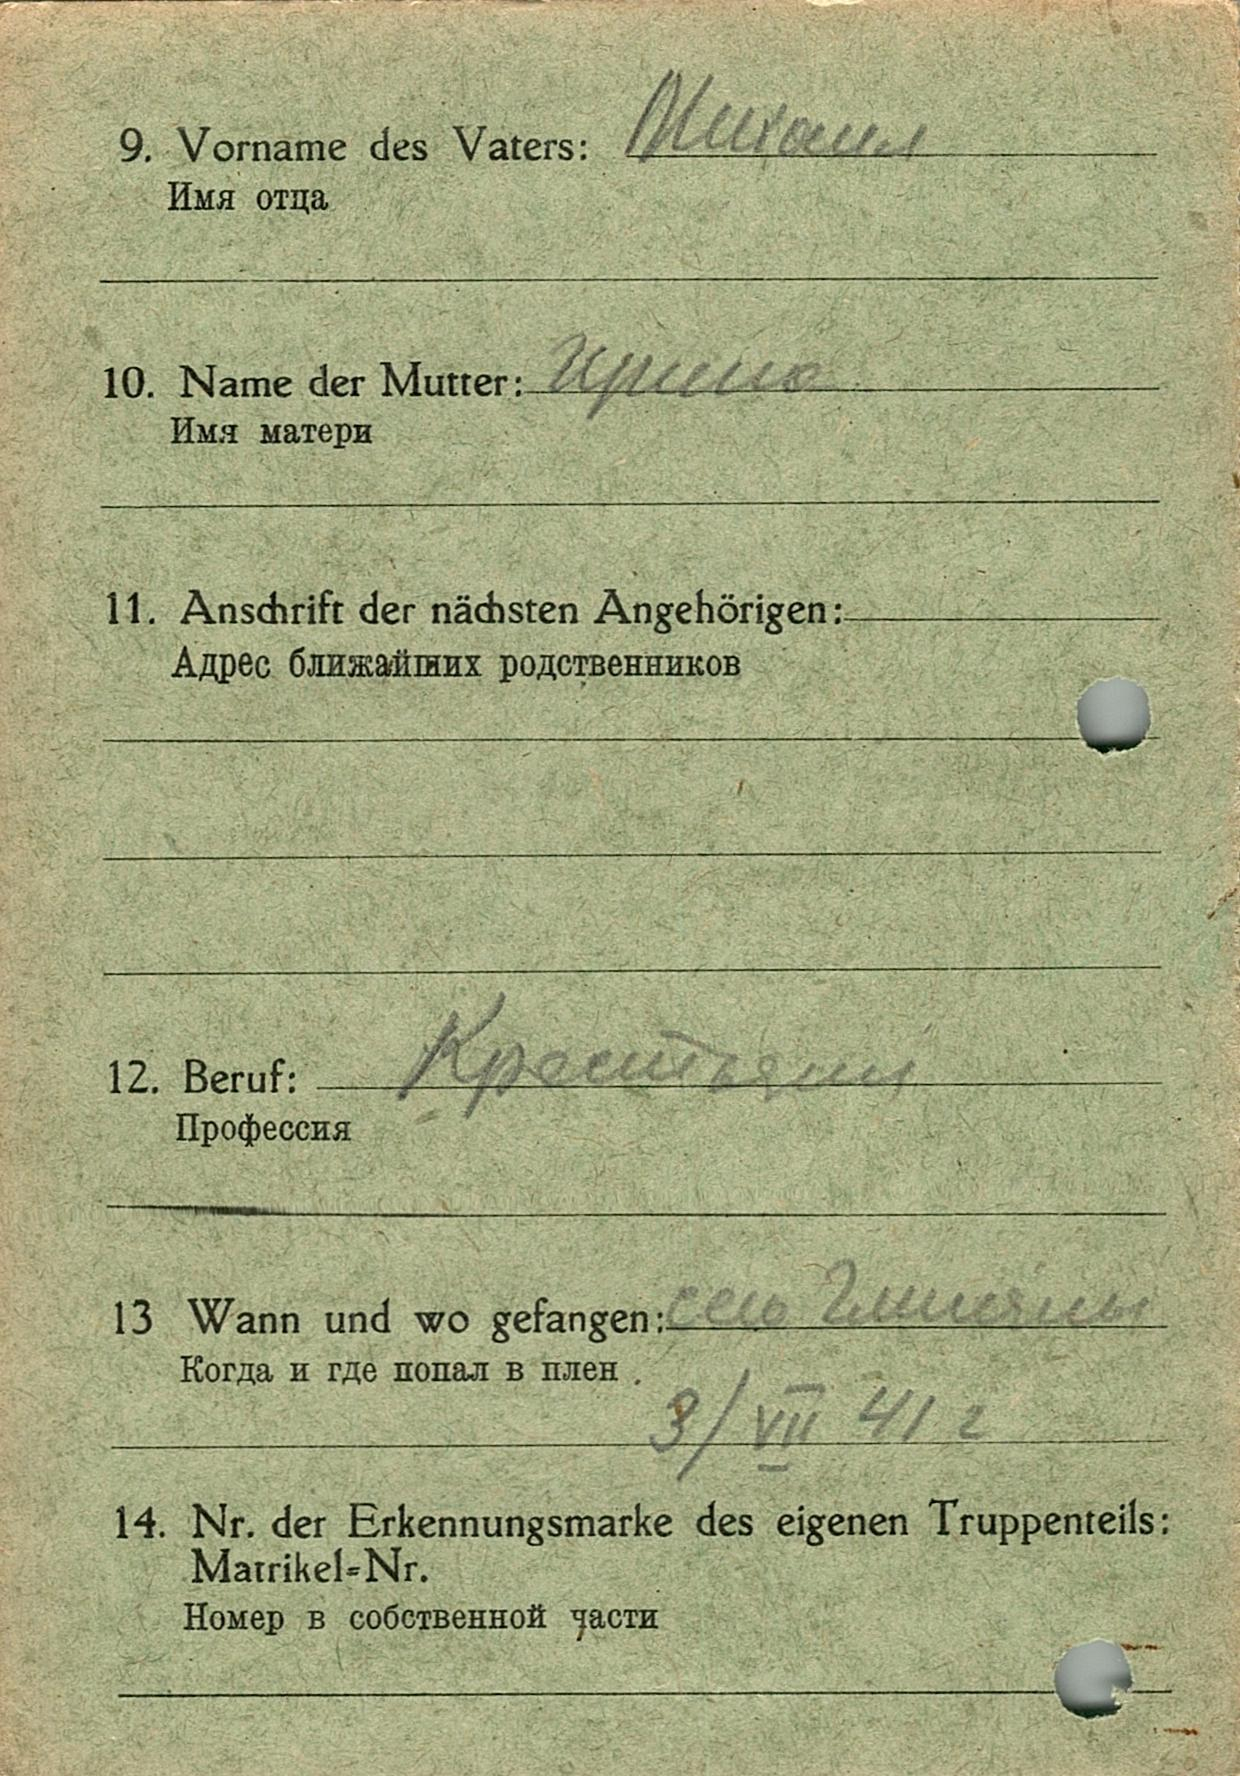 9. Vorname des Vaters: Михаил
Имя отца
10. Name der Mutter: Ирина
Имя матери
11. Anschrift der nächsten Angehörigen:
Адрес ближайших родственников
12. Beruf: Крестьянин
Профессия
13 Wann und wo gefangen: село
Когда и где попал в плен
3/VII 41 г
14. Nr. der Erkennungsmarke des eigenen Truppenteils:
Matrikel-Nr.
Номер в собственной части